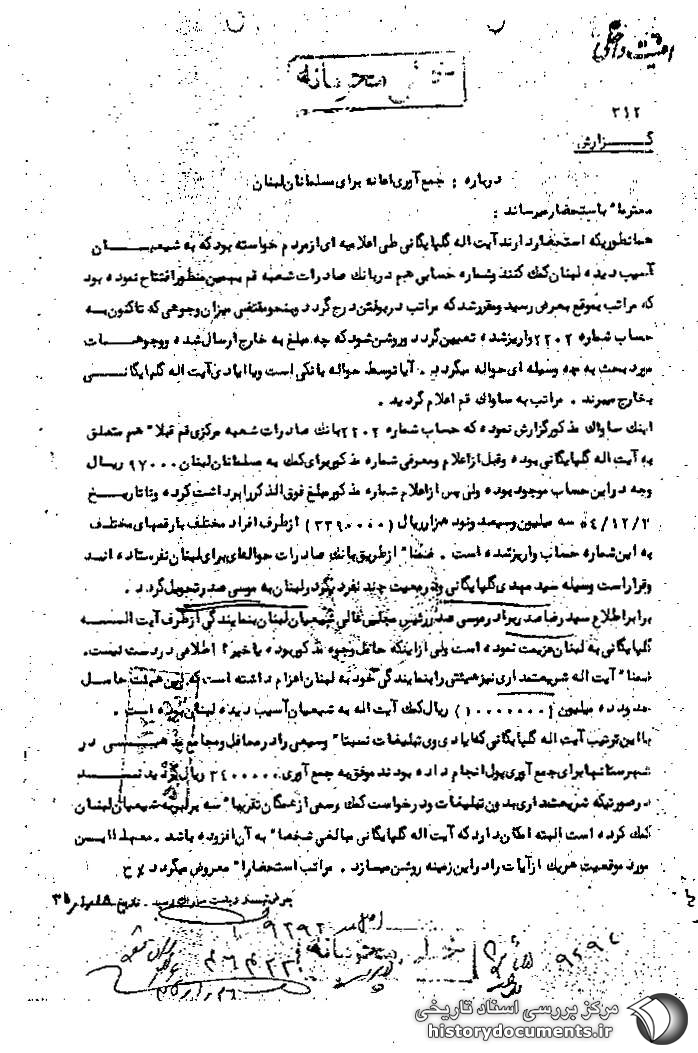 امنیت داخلی
خیلی محرمانه
۳۱۲
گزارش
درباره : جمع آوری اعانه برای مسلمانان لبنان
محترما" باستحضار میرساند :
همانطوریکه استحضار دارند آیت اله گلپایگانی طی اعلامیه ای از مردم خواسته بود که به شیعیان
آسیب دیده لبنان کمک کنند و شماره حسابی هم در بانک صادرات شعبه قم بهمین منظور افتتاح نموده بود
که مراتب بموقع بعرض رسید و مقرر شد که مراتب در بولتن درج گردد و بنحو مقتضی میزان وجوهی که تاکنون به
حساب شماره ۲۲۰۲ واریز شده تعیین گردد و روشن شود که چه مبلغ به خارج ارسال شده و وجوهات
مورد بحث به چه وسیله ای حواله میگردد . آیا توسط حواله بانکی است و یا ایادی آیت اله گلپایگانی
بخارج میبرند . مراتب به ساواک قم اعلام گردید .
اینک ساواک مذکور گزارش نموده که حساب شماره ۲۲۰۲ بانک صادرات شعبه مرکزی قم قبلا" هم متعلق
به آیت اله گلپایگانی بوده و قبل از اعلام و معرفی شماره مذکور برای کمک به مسلمانان لبنان ۹۷۰۰۰ ریال
وجه در این حساب موجود بوده ولی پس از اعلام شماره مذکور مبلغ فوق الذکر را برداشت کرده و تا تاریخ
۵۴/۱۲/۲ سه میلیون و سیصد و نود هزار ریال (۳۳۹۰۰۰۰) از طرف افراد مختلف با رقمهای مختلف
به این شماره حساب واریز شده است . ضمنا" از طریق بانک صادرات حواله‌ای برای لبنان نفرستاده اند
و قرار است وسیله سید مهدی گلپایگانی و در معیت چند نفر دیگر در لبنان به موسی صدر تحویل گردد .
برابر اطلاع سید رضا صدر برادر موسی صدر رئیس مجلس عالی شیعیان لبنان بنمایندگی از طرف آیت اله
گلپایگانی به لبنان عزیمت نموده است ولی از اینکه حامل وجوه مذکور بوده یا خیر ؟ اطلاعی در دست نیست .
ضمنا" آیت اله شریعتمداری نیز هیئتی را بنمایندگی خود به لبنان اعزام داشته است که این هیئت حامل
حدود ده میلیون (۱۰۰۰۰۰۰۰) ریال کمک آیت اله به شیعیان آسیب دیده لبنان بوده است .
با این ترتیب آیت اله گلپایگانی که ایادی وی تبلیغات نسبتا" وسیعی را در محافل و مجامع مذهبی در
شهرستانها برای جمع آوری پول انجام داده بودند موفق به جمع آوری ۳۴۰۰۰۰۰ ریال گردیدند
در صورتیکه شریعتمداری بدون تبلیغات و درخواست کمک رسمی از همگان تقریبا" سه برابر به شیعیان لبنان
کمک کرده است البته امکان دارد که آیت اله گلپایگانی مبالغی شخصا" به آن افزوده باشد . معهذا این
مورد موقعیت هریک از آیات را در این زمینه روشن میسازد . مراتب استحضارا" معروض میگردد
۹۲۹۲
خیلی محرمانه
مرکز بررسی اسناد تاریخی
historydocuments.ir